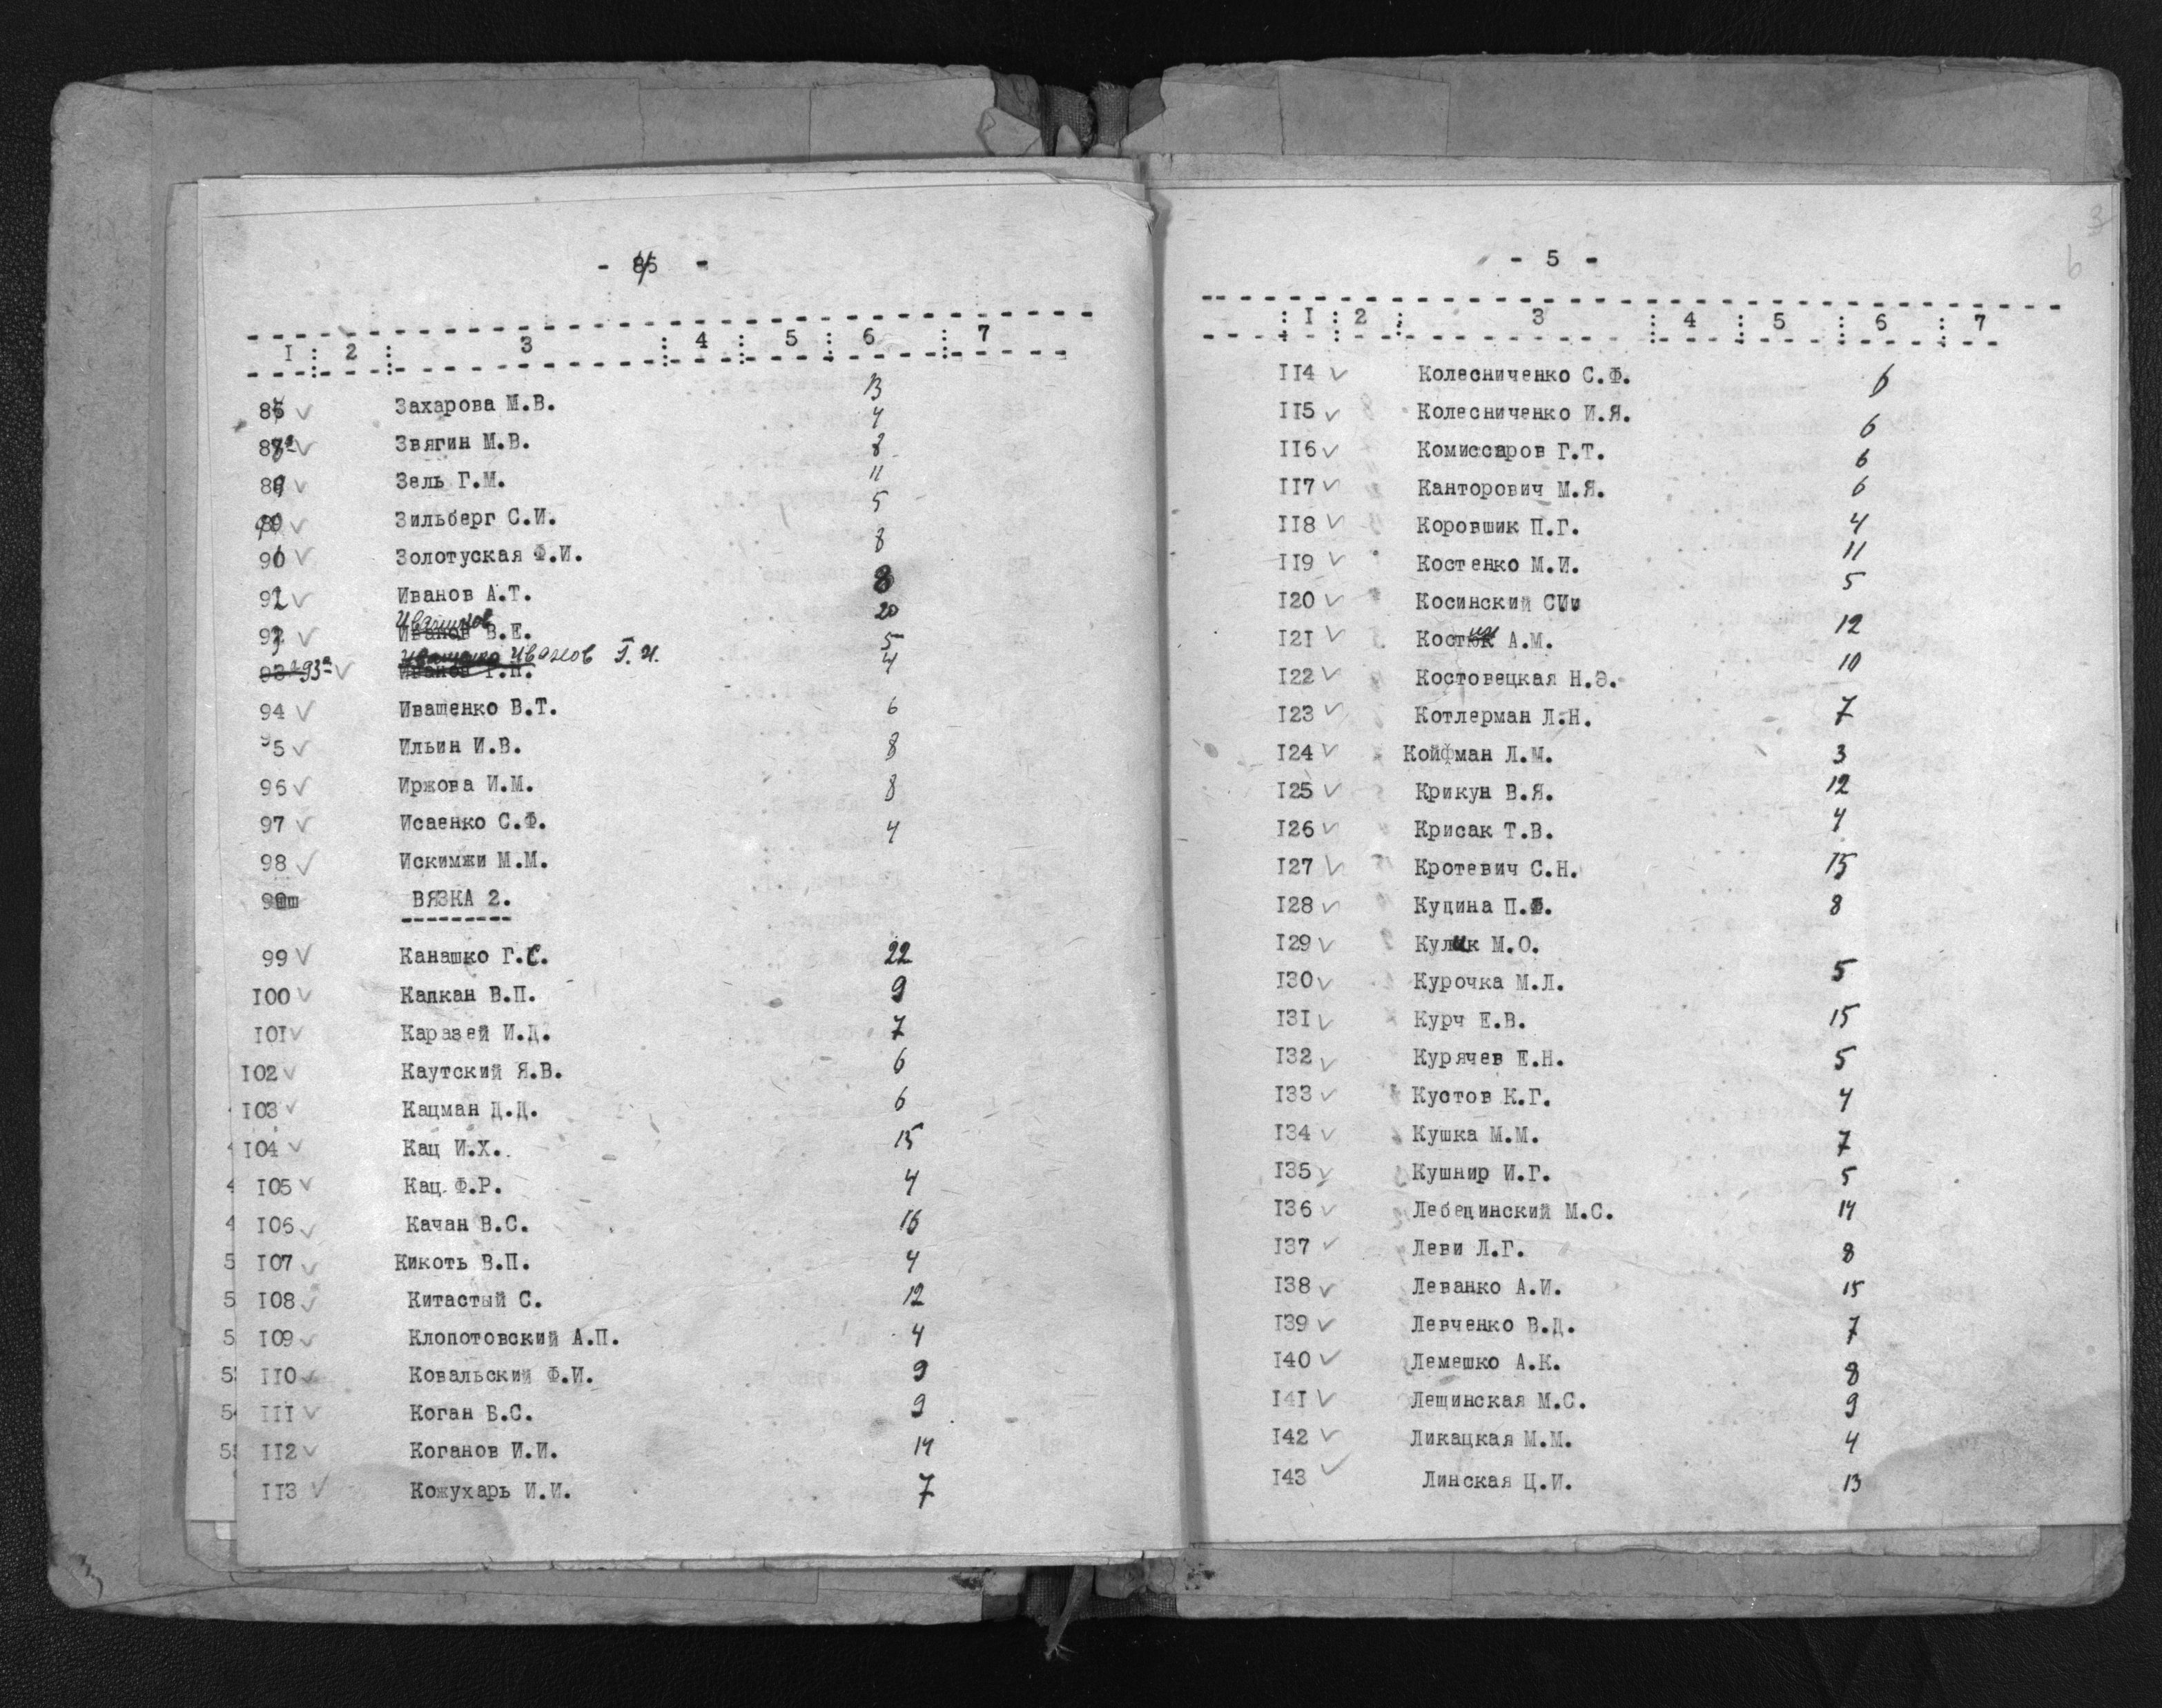 - 4 -
I : 2 : 3 : 4 : 5 : 6 : 7
13
Захарова М.В. 4
Звягин М.В. 8
89 Зель Г.М. 11
90 Зильберг С.И. 5
Золотуская Ф.И. 8
92 Иванов А.Т. 8
Ивашков
93 Иванов В.Е. 20
5
Иванов Г.И.
93а 4
94 Иващенко В.Т. 6
95 Ильин И.В. 8
96 Иржова И.М. 8
97 Исаенко С.Ф. 4
98 Искимжи М.М.
ВЯЗКА 2.
99 Канашко Г.С. 22
I00 Капкан В.П. 9
I0I Каразей И.Д. 7
I02 Каутский Я.В. 6
I03 Кацман Д.Д. 6
I04 Кац И.Х. 15
I05 Кац Ф.Р. 4
I06 Качан В.С. 16
I07 Кикоть В.П. 4
I08 Китастый С. 12
I09 Клопотовский А.П. 4
II0 Ковальский Ф.И. 9
III Коган Б.С. 9
II2 Коганов И.И. 14
II3 Кожухарь И.И. 7
3
6
- 5 -
: I : 2 : 3 : 4 : 5 : 6 : 7
II4 Колесниченко С.Ф. 6
II5 Колесниченко И.Я. 6
II6 Комиссаров Г.Т. 6
II7 Канторович М.Я. 6
II8 Коровшик П.Г. 4
II9 Костенко М.И. 11
I20 Косинский 5
I2I А.М. 12
I22 Костовецкая Н.Э. 10
I23 Котлерман Л.Н. 7
I24 Койфман Л.М. 3
I25 Крикун В.Я. 12
I26 Крисак Т.В. 4
I27 Кротевич С.Н. 15
I28 Куцина П.Ф. 8
I29 Кулик М.О.
I30 Курочка М.Л. 5
I3I Курч Е.В. 15
I32 Курячев Е.Н. 5
I33 Кустов К.Г. 4
I34 Кушка М.М. 7
I35 Кушнир И.Г. 5
I36 Лебединский М.С. 14
I37 Леви Л.Г. 8
I38 Леванко А.И. 15
I39 Левченко В.Д. 7
I40 Лемешко А.К. 8
I4I Лещинская М.С. 9
I42 Ликацкая М.М. 4
I43 Линская Ц.И. 13